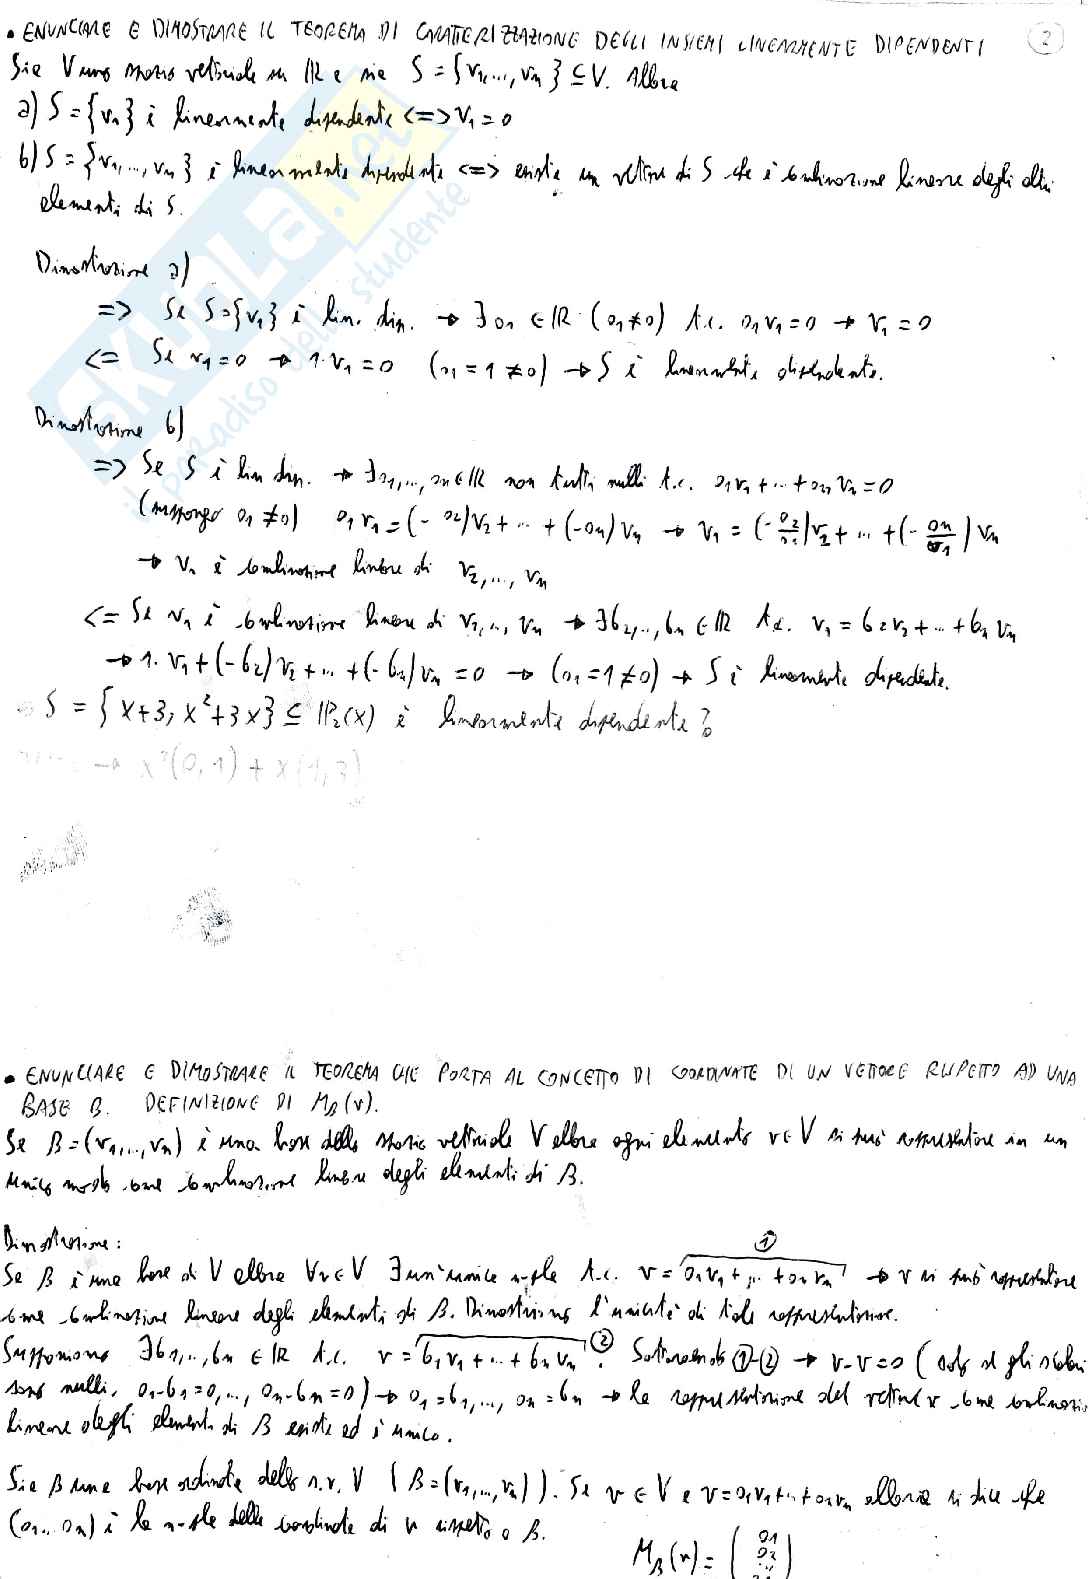 • ENUNCIARE E DIMOSTRARE IL TEOREMA DI CARATTERIZZAZIONE DEGLI INSIEMI LINEARMENTE DIPENDENTI 2
Sia V uno spazio vettoriale su ℝ e sia S = {v1,...,vn} ⊆ V. Allora
a) S = {v1} è linearmente dipendente <=> v1 = 0
b) S = {v1,...,vn} è linearmente dipendente <=> esiste un vettore di S che è combinazione lineare degli altri
elementi di S.
Dimostrazione a)
=> Se S={v1} è lin. dip. → ∃ a1 ∈ ℝ (a1≠0) t.c. a1v1=0 → v1=0
<= Se v1=0 → 1·v1=0 (a1=1≠0) → S è linearmente dipendente.
Dimostrazione b)
=> Se S è lin dip. → ∃a1,...,an∈ℝ non tutti nulli t.c. a1v1+...+anvn=0
(suppongo a1≠0) a1v1=(-a2)v2+...+(-an)vn → v1=(-a2/a1)v2+...+(-an/a1)vn
→ v1 è combinazione lineare di v2,...,vn
<= Se v1 è combinazione lineare di v1,...,vn → ∃b2,..,bn ∈ ℝ t.c. v1 = b2v2+...+bnvn
→ 1·v1+(-b2)v2+...+(-bn)vn=0 → (a1=1≠0) → S è linearmente dipendente.
S = {x+3, x²+3x} ⊆ ℙ2(x) è linearmente dipendente?
→ x²(0,1) + x(1,3)
• ENUNCIARE E DIMOSTRARE IL TEOREMA CHE PORTA AL CONCETTO DI COORDINATE DI UN VETTORE RISPETTO AD UNA
BASE B. DEFINIZIONE DI MB(v).
Se B=(v1,...,vn) è una base dello spazio vettoriale V allora ogni elemento v∈V si può rappresentare in un
unico modo come combinazione lineare degli elementi di B.
Dimostrazione:
Se B è una base di V allora ∀v∈V ∃ un'unica n-pla t.c. v = a1v1+...+anvn ① → v si può rappresentare
come combinazione lineare degli elementi di B. Dimostriamo l'unicità di tale rappresentazione.
Supponiamo ∃b1,..,bn ∈ ℝ t.c. v = b1v1+...+bnvn ②. Sottraendo ①-② → v-v=0 (solo se gli scalari
sono nulli, a1-b1=0,..., an-bn=0) → a1=b1,..., an=bn → la rappresentazione del vettore v come combinazio
lineare degli elementi di B esiste ed è unica.
Sia B una base ordinata dello s.v. V (B=(v1,...,vn)). Se v∈V e v=a1v1+..+anvn allora si dice che
(a1...an) è la n-pla delle coordinate di v rispetto a B.
MB(v) = (a1
a2